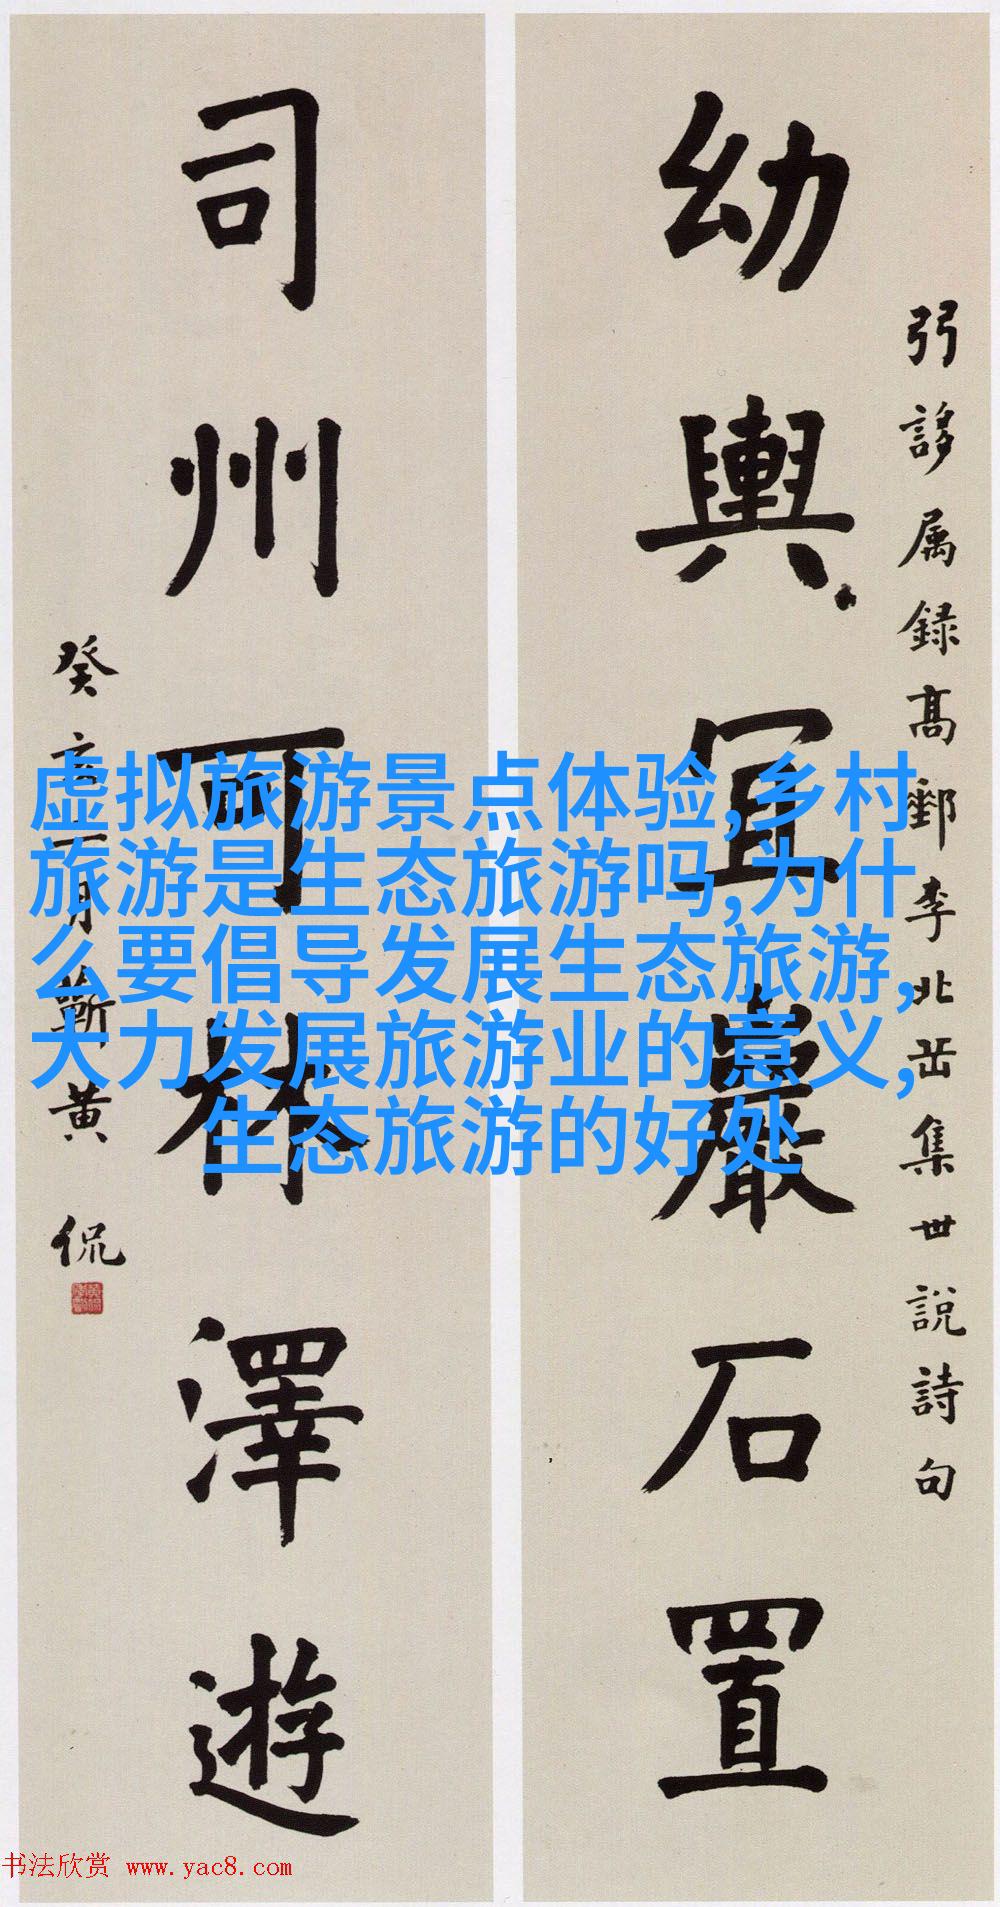 弜誃属録高郵李北茁集世説詩句
幼輿宜巖石置
司州可林澤遊
癸亥十月蘄黄侃
虚拟旅游景点体验,乡村
旅游是生态旅游吗,为什
么要倡导发展生态旅游,
大力发展旅游业的意义,
生态旅游的好处
书法欣赏 www.yac8.com